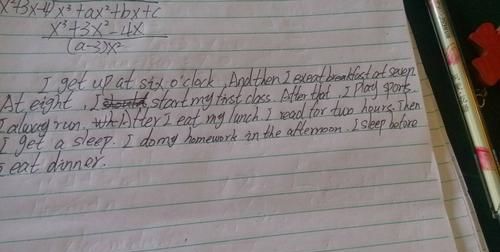 x²+3x-4) x³+ax²+bx+c
x³+3x²-4x
(a-3)x²
I get up at six o'clock, And then I eat breakfast at seven.
At eight, I start my first class. After that, I play sports.
I always run. After I eat my lunch. I read for two hours. Then
I get a sleep. I do my homework in the afternoon. I sleep before
I eat dinner.